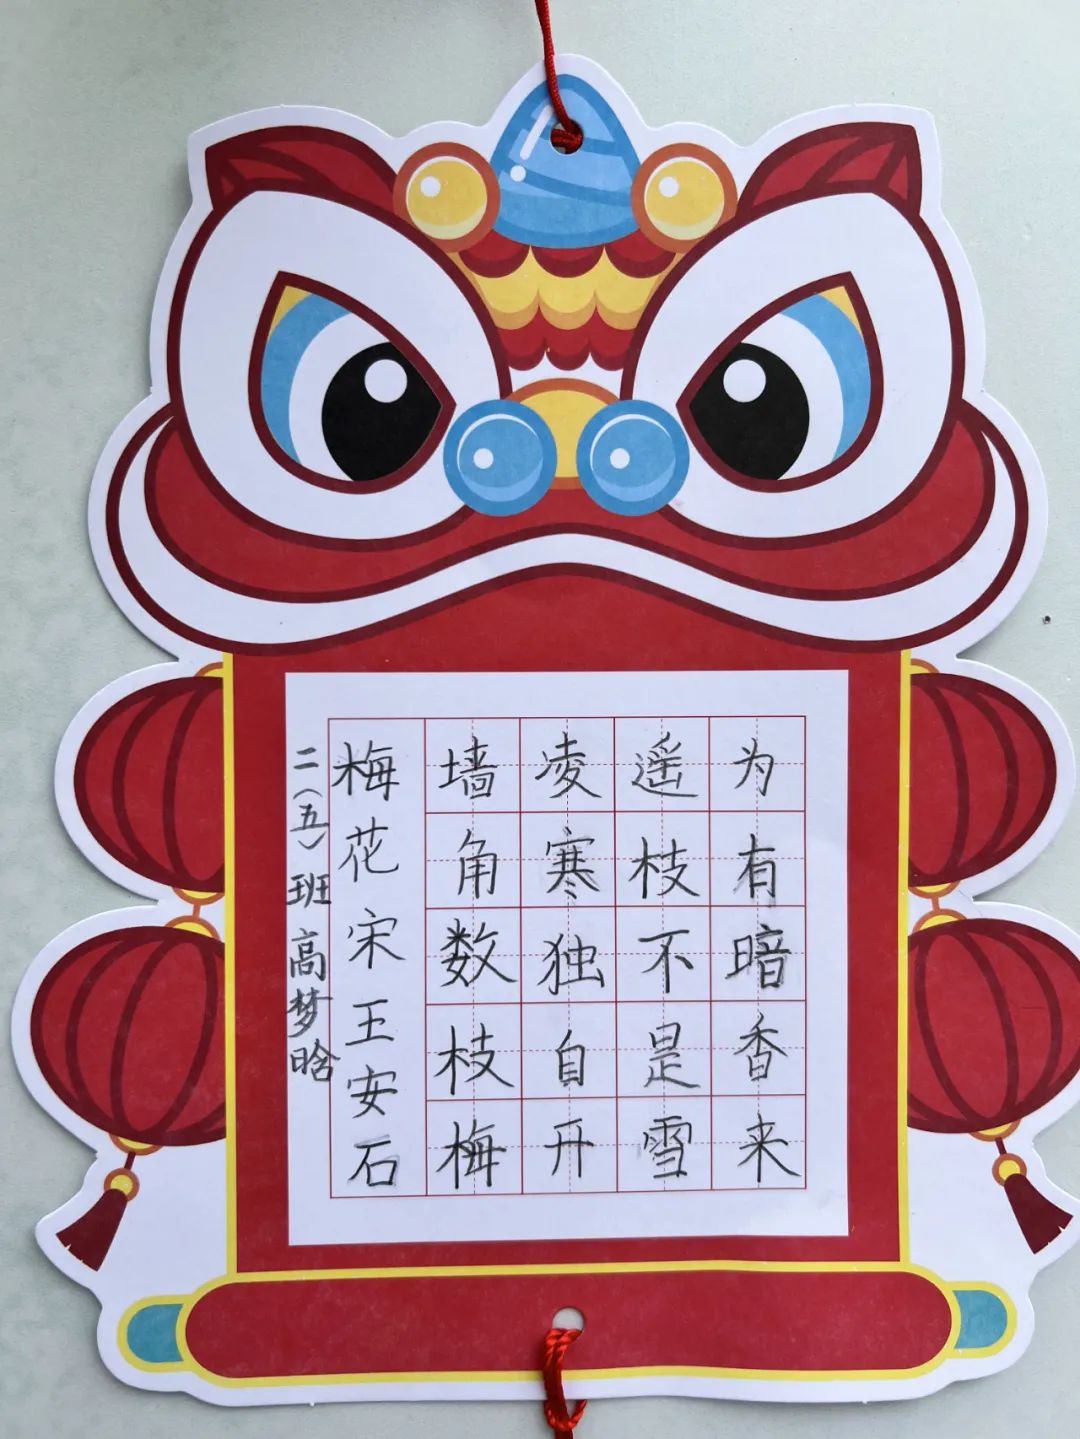 二(五)班 高梦晗
梅花 宋 王安石
墙角数枝梅
凌寒独自开
遥枝不是雪
为有暗香来